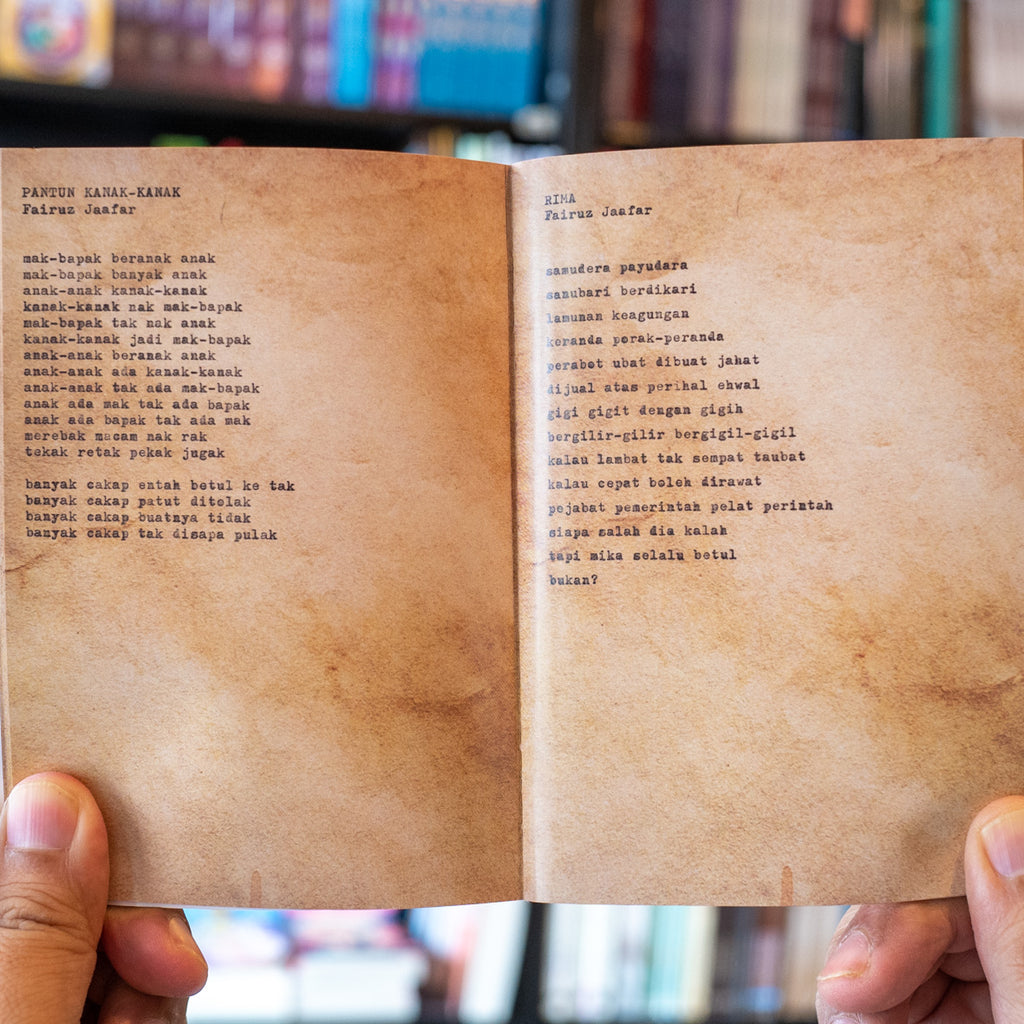 PANTUN KANAK-KANAK
Fairuz Jaafar
mak-bapak beranak anak
mak-bapak banyak anak
anak-anak kanak-kanak
kanak-kanak nak mak-bapak
mak-bapak tak nak anak
kanak-kanak jadi mak-bapak
anak-anak beranak anak
anak-anak ada kanak-kanak
anak-anak tak ada mak-bapak
anak ada mak tak ada bapak
anak ada bapak tak ada mak
merebak macam nak rak
tekak retak pekak jugak
banyak cakap entah betul ke tak
banyak cakap patut ditolak
banyak cakap buatnya tidak
banyak cakap tak disapa pulak
RIMA
Fairuz Jaafar
samudera payudara
sanubari berdikari
lamunan keagungan
keranda porak-peranda
perabot ubat dibuat jahat
dijual atas perihal ehwal
gigi gigit dengan gigih
bergilir-gilir bergigil-gigil
kalau lambat tak sempat taubat
kalau cepat boleh dirawat
pejabat pemerintah pelat perintah
siapa salah dia kalah
tapi mika selalu betul
bukan?